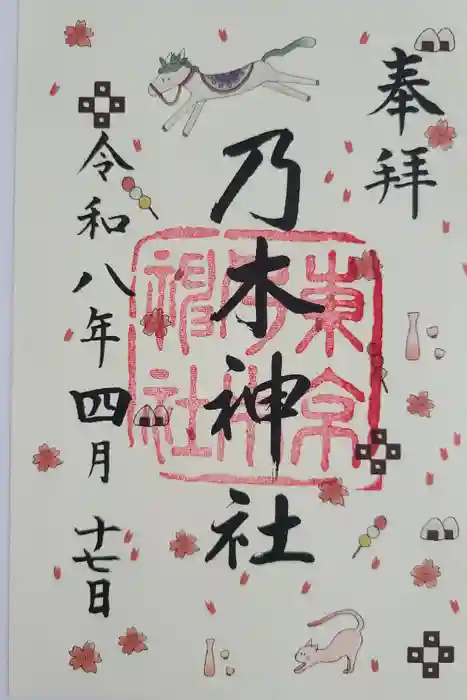 奉拝
乃木神社
東京乃木神社
令和八年四月十七日